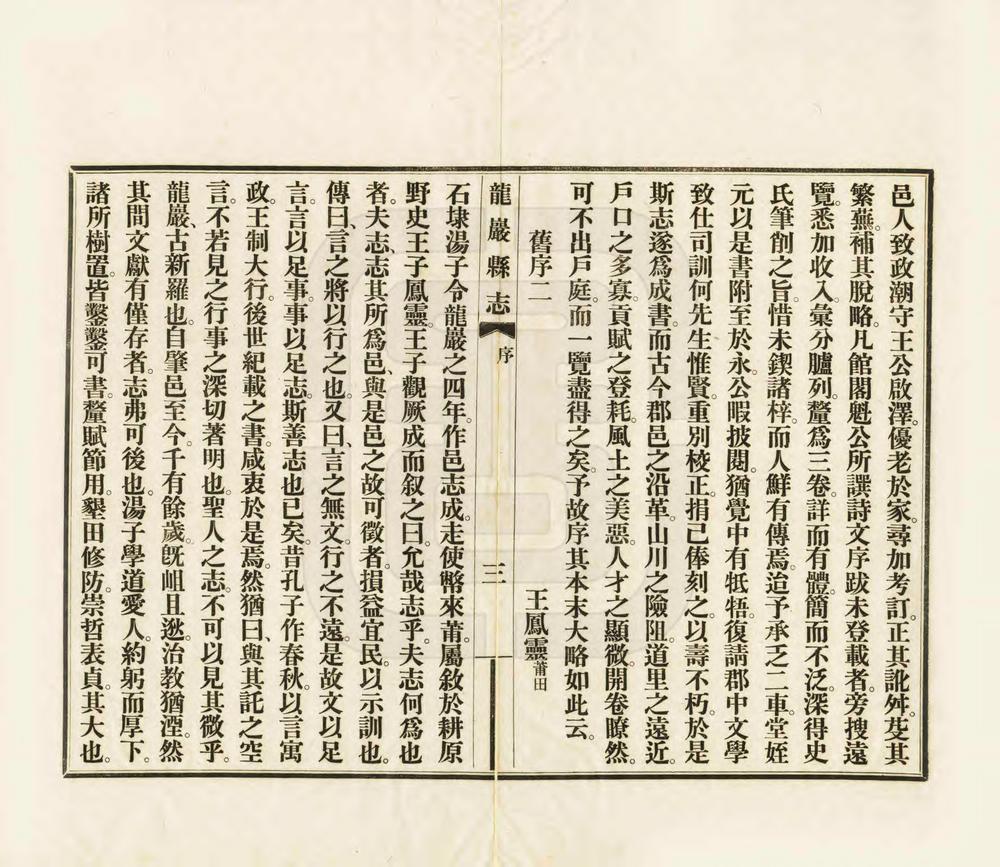 邑人致政潮守王公啟澤。優老於家。尋加考訂。正其訛舛。芟其
繁蕪。補其脫略。凡館閣魁公所譔詩文序跋未登載者。旁搜遠
覽。悉加收入。彙分臚列。釐爲三卷。詳而有體。簡而不泛。深得史
氏筆削之旨。惜未鍥諸梓。而人鮮有傳焉。迨予承乏二車。堂姪
元以是書附至於永。公暇披閱。猶覺中有牴牾。復請郡中文學
致仕司訓何先生惟賢。重別校正。捐己俸刻之。以壽不朽。於是
斯志遂爲成書。而古今郡邑之沿革。山川之險阻。道里之遠近。
戶口之多寡。貢賦之登耗。風土之美惡。人才之顯微。開卷瞭然。
可不出戶庭。而一覽盡得之矣。予故序其本末大略如此云。
舊序二 王鳳靈莆田
龍巖縣志 序 三
石埭湯子令龍巖之四年。作邑志成。走使幣來莆。屬敘於耕原
野史王子鳳靈。王子觀厥成而叙之曰。允哉志乎。夫志何爲也
者。夫志、志其所爲邑、與是邑之故可徵者。損益宜民。以示訓也。
傳曰、言之將以行之也。又曰、言之無文。行之不遠。是故文以足
言。言以足事。事以足志。斯善志也已矣。昔孔子作春秋。以言寓
政。王制大行。後世紀載之書。咸衷於是焉。然猶曰、與其託之空
言。不若見之行事之深切著明也。聖人之志。不可以見其微乎。
龍巖、古新羅也。自肇邑至今。千有餘歲。旣岨且逖。治教猶湮。然
其間文獻有僅存者。志弗可後也。湯子學道愛人。約躬而厚下。
諸所樹置。皆鑿鑿可書。釐賦節用。墾田修防。崇哲表貞。其大也。